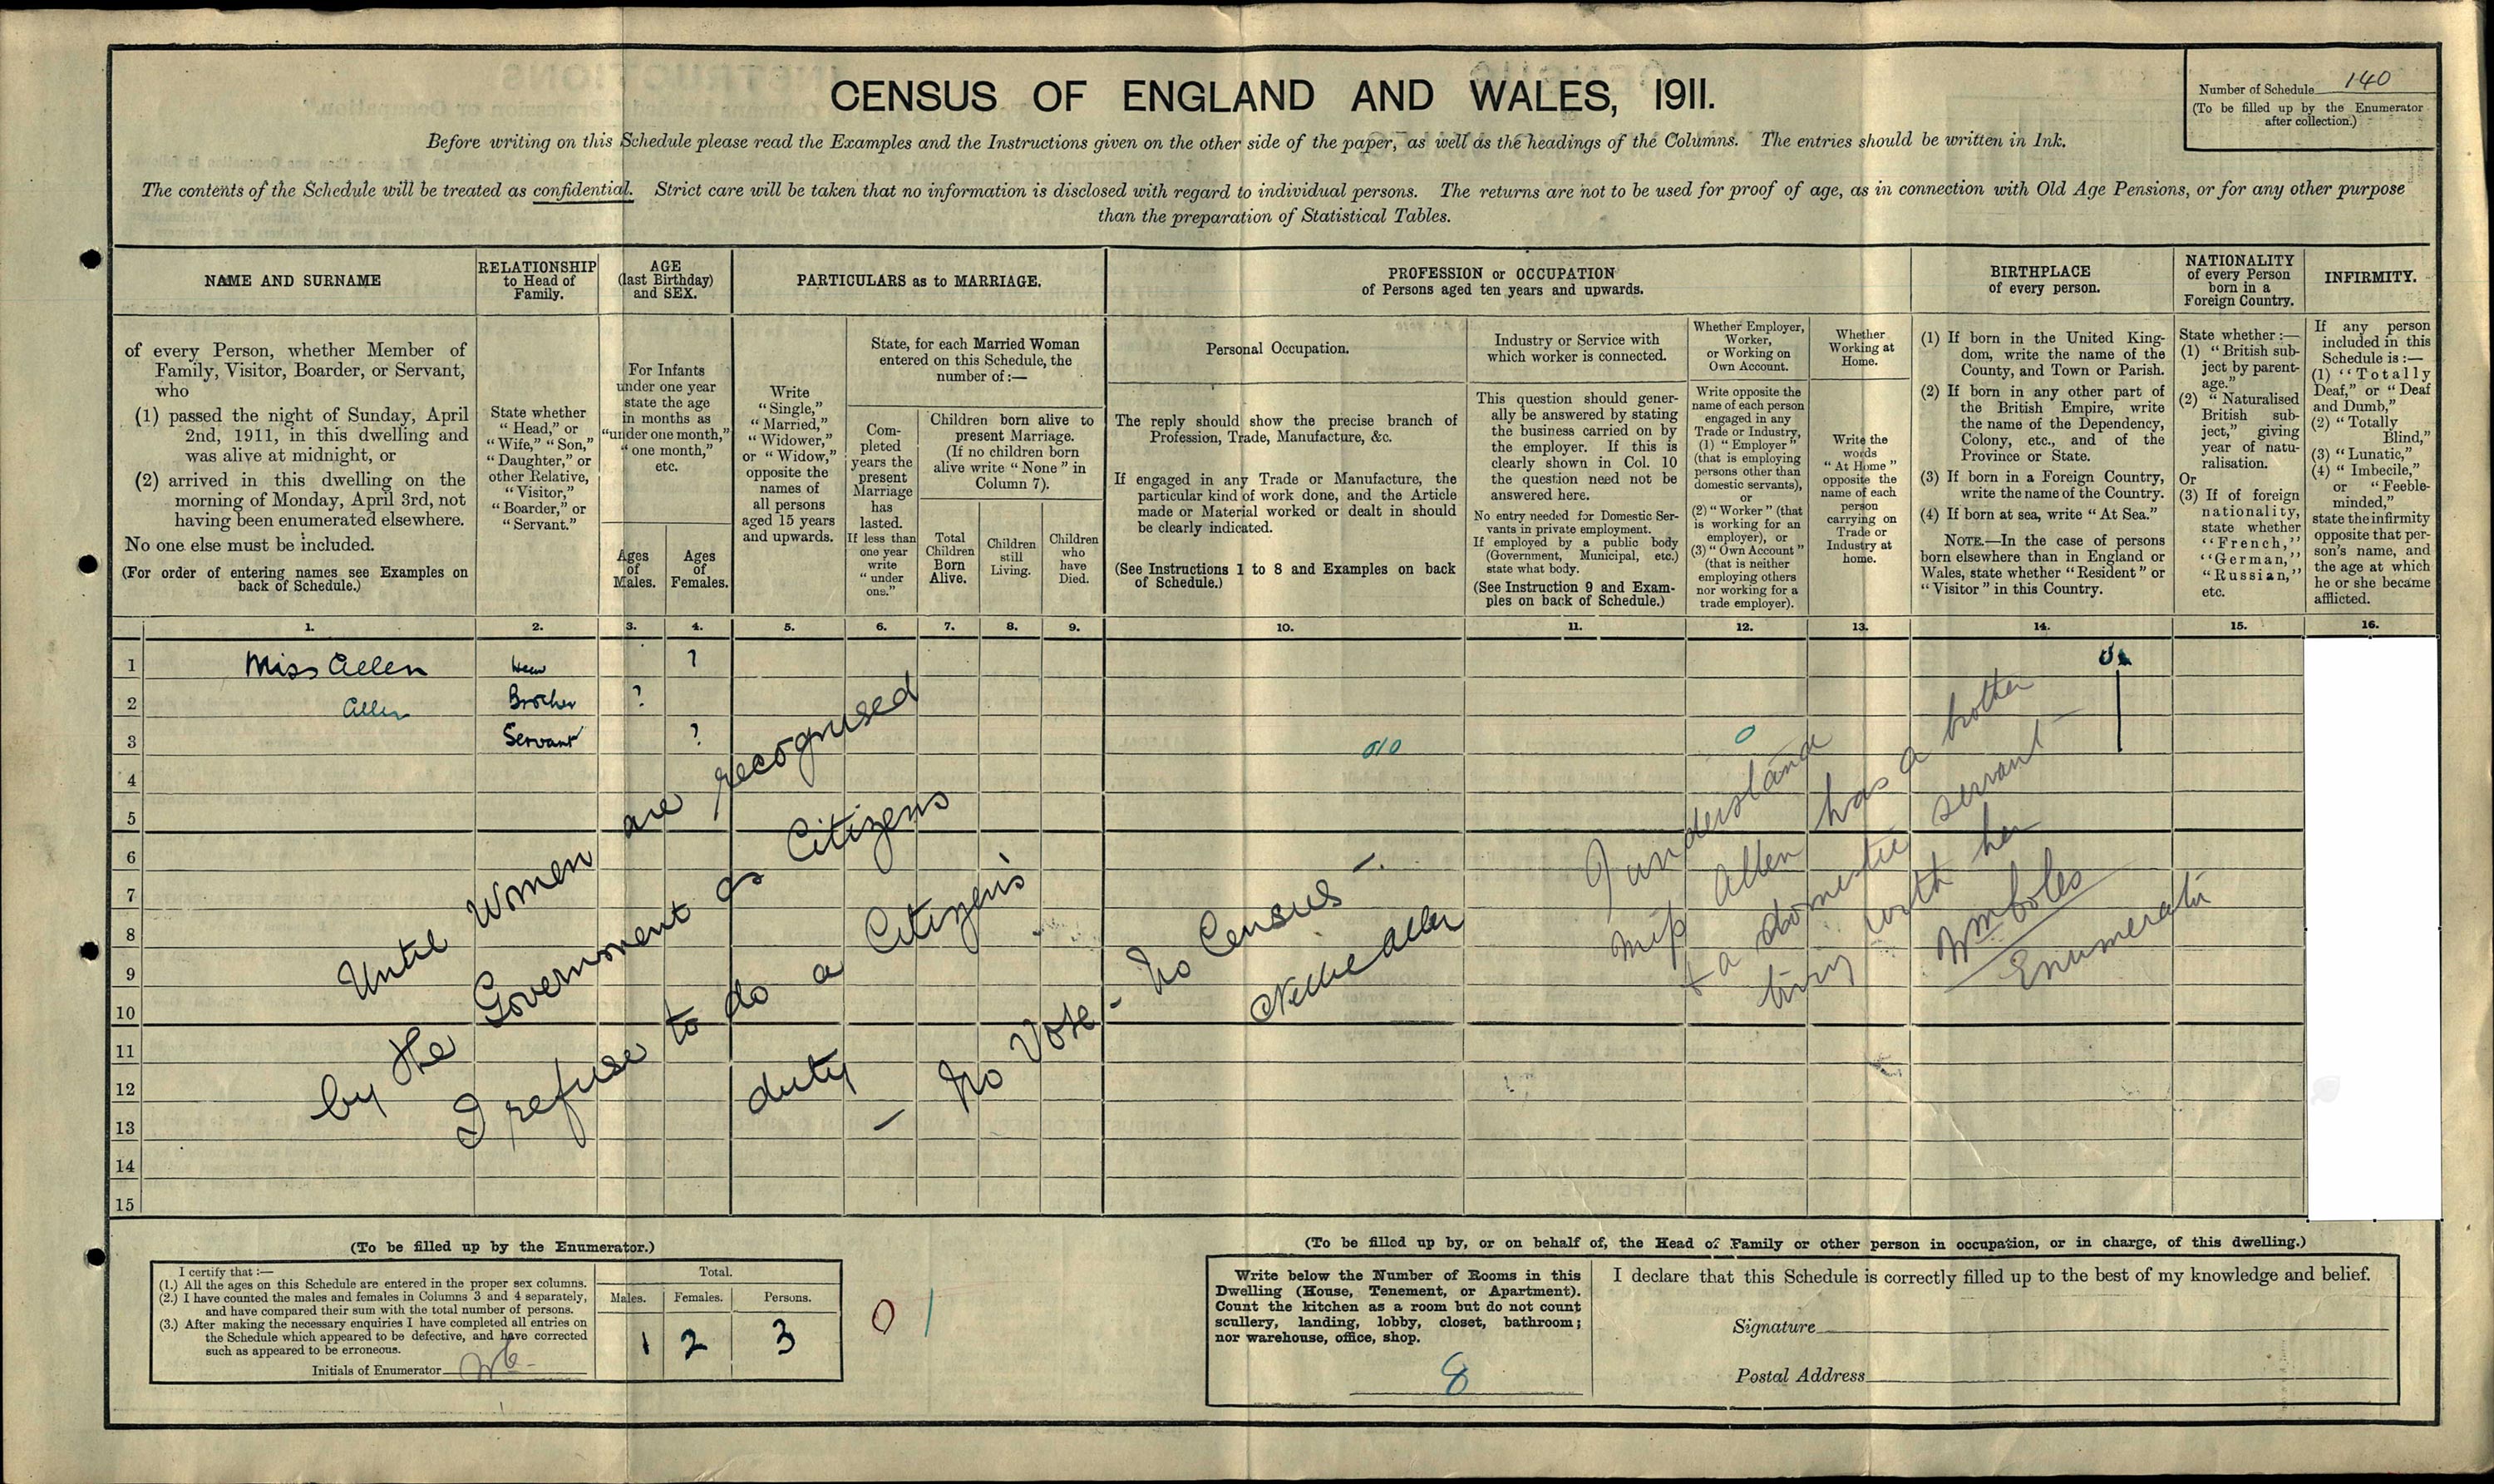 CENSUS OF ENGLAND AND WALES, 1911.
Number of Schedule 140
(To be filled up by the Enumerator
after collection.)
Before writing on this Schedule please read the Examples and the Instructions given on the other side of the paper, as well as the headings of the Columns. The entries should be written in Ink.
The contents of the Schedule will be treated as confidential. Strict care will be taken that no information is disclosed with regard to individual persons. The returns are not to be used for proof of age, as in connection with Old Age Pensions, or for any other purpose
than the preparation of Statistical Tables.
NAME AND SURNAME
of every Person, whether Member of
Family, Visitor, Boarder, or Servant,
who
(1) passed the night of Sunday, April
2nd, 1911, in this dwelling and
was alive at midnight, or
(2) arrived in this dwelling on the
morning of Monday, April 3rd, not
having been enumerated elsewhere.
No one else must be included.
(For order of entering names see Examples on
back of Schedule.)
RELATIONSHIP
to Head of
Family.
State whether
"Head," or
"Wife," "Son,"
"Daughter," or
other Relative,
"Visitor,"
"Boarder," or
"Servant."
AGE
(last Birthday)
and SEX.
For Infants
under one year
state the age
in months as
"under one month,"
"one month,"
etc.
Ages
of
Males.
Ages
of
Females.
PARTICULARS as to MARRIAGE.
Write
"Single,"
"Married,"
"Widower,"
or "Widow,"
opposite the
names of
all persons
aged 15 years
and upwards.
State, for each Married Woman
entered on this Schedule, the
number of:—
Com-
pleted
years the
present
Marriage
has
lasted.
If less than
one year
write
"under
one."
Children born alive to
present Marriage.
(If no children born
alive write "None" in
Column 7).
Total
Children
Born
Alive.
Children
still
Living.
Children
who
have
Died.
PROFESSION or OCCUPATION
of Persons aged ten years and upwards.
Personal Occupation.
The reply should show the precise branch of
Profession, Trade, Manufacture, &c.
If engaged in any Trade or Manufacture, the
particular kind of work done, and the Article
made or Material worked or dealt in should
be clearly indicated.
(See Instructions 1 to 8 and Examples on back
of Schedule.)
Industry or Service with
which worker is connected.
This question should gener-
ally be answered by stating
the business carried on by
the employer. If this is
clearly shown in Col. 10
the question need not be
answered here.
No entry needed for Domestic Ser-
vants in private employment.
If employed by a public body
(Government, Municipal, etc.)
state what body.
(See Instruction 9 and Exam-
ples on back of Schedule.)
Whether Employer,
Worker,
or Working on
Own Account.
Write opposite the
name of each person
engaged in any
Trade or Industry,
(1) "Employer"
(that is employing
persons other than
domestic servants),
or
(2) "Worker" (that
is working for an
employer), or
(3) "Own Account"
(that is neither
employing others
nor working for a
trade employer).
Whether
Working at
Home.
Write the
words
"At Home"
opposite the
name of each
person
carrying on
Trade or
Industry at
home.
BIRTHPLACE
of every person.
(1) If born in the United King-
dom, write the name of the
County, and Town or Parish.
(2) If born in any other part of
the British Empire, write
the name of the Dependency,
Colony, etc., and of the
Province or State.
(3) If born in a Foreign Country,
write the name of the Country.
(4) If born at sea, write "At Sea."
NOTE.—In the case of persons
born elsewhere than in England or
Wales, state whether "Resident" or
"Visitor" in this Country.
NATIONALITY
of every Person
born in a
Foreign Country.
State whether:—
(1) "British sub-
ject by parent-
age."
(2) "Naturalised
British sub-
ject," giving
year of natu-
ralisation.
Or
(3) If of foreign
nationality,
state whether
"French,"
"German,"
"Russian,"
etc.
INFIRMITY.
If any person
included in this
Schedule is:—
(1) "Totally
Deaf," or "Deaf
and Dumb,"
(2) "Totally
Blind,"
(3) "Lunatic,"
(4) "Imbecile,"
or "Feeble-
minded,"
state the infirmity
opposite that per-
son's name, and
the age at which
he or she became
afflicted.
1. 2. 3. 4. 5. 6. 7. 8. 9. 10. 11. 12. 13. 14. 15. 16.
1 Miss Allen Head ?
2 Allen Brother ?
3 Servant ? 010 0
4
5
6
7
8
9
10
11
12
13
14
15
Until Women are recognised
by the Government as Citizens
I refuse to do a Citizen's
duty — No Vote — No Census —.
Nellie Allen
I understand
Miss Allen has a brother
+ a domestic servant —
living with her
Wm Boles
Enumerator
(To be filled up by the Enumerator.)
I certify that:—
(1.) All the ages on this Schedule are entered in the proper sex columns.
(2.) I have counted the males and females in Columns 3 and 4 separately,
and have compared their sum with the total number of persons.
(3.) After making the necessary enquiries I have completed all entries on
the Schedule which appeared to be defective, and have corrected
such as appeared to be erroneous.
Initials of Enumerator
Total.
Males. Females. Persons.
1 2 3
0 1
(To be filled up by, or on behalf of, the Head of Family or other person in occupation, or in charge, of this dwelling.)
Write below the Number of Rooms in this
Dwelling (House, Tenement, or Apartment).
Count the kitchen as a room but do not count
scullery, landing, lobby, closet, bathroom;
nor warehouse, office, shop.
8
I declare that this Schedule is correctly filled up to the best of my knowledge and belief.
Signature
Postal Address